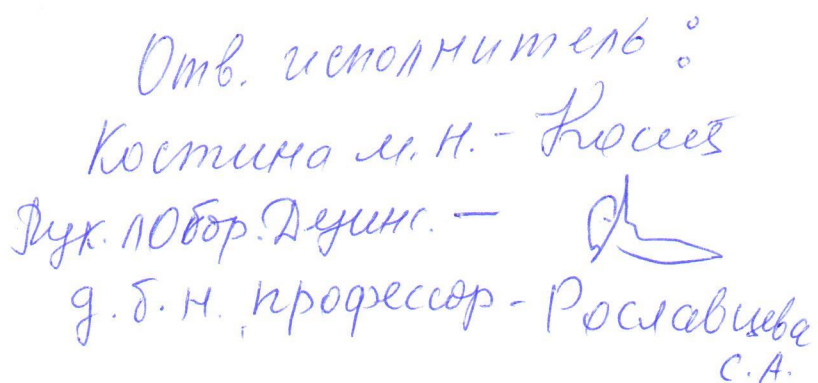 Отв. исполнитель:
Костина М.Н. -
Рук. лабор. Дезинс. -
д.б.н. профессор - Рославцева
С.А.